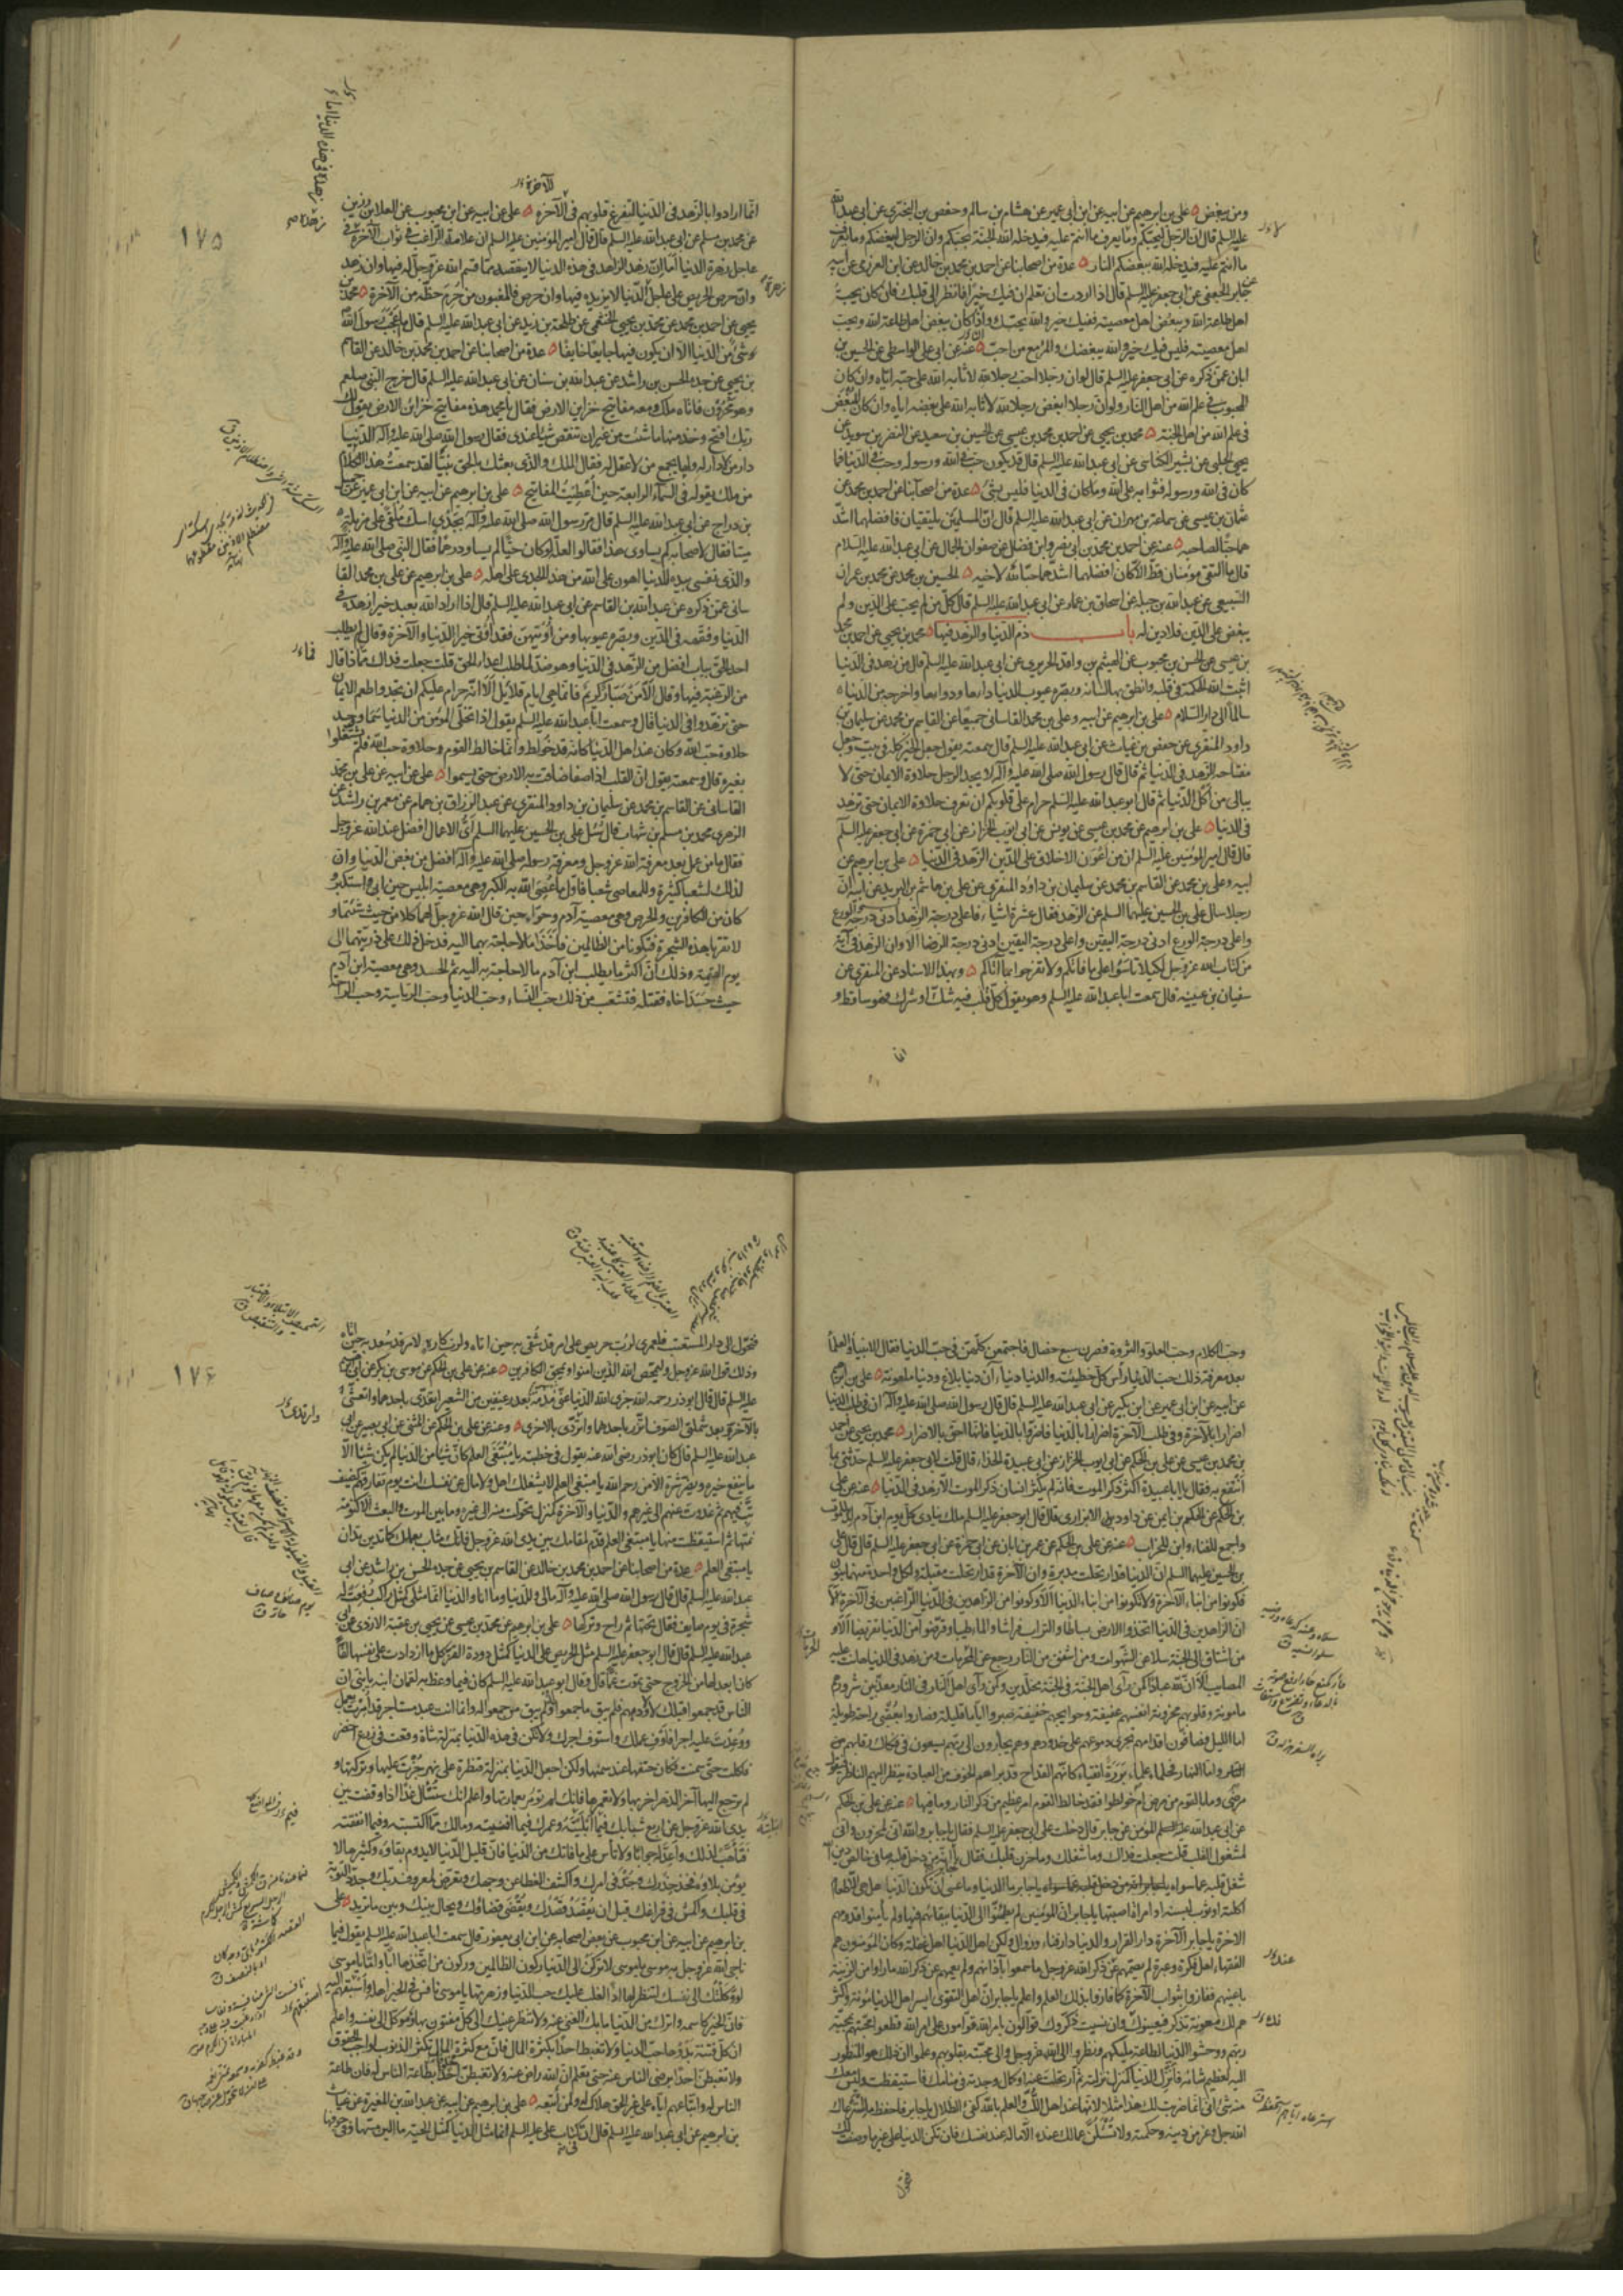 ومن يبغض علي بن ابرهيم عن ابيه عن ابن ابي عمير عن هشام بن سالم وحفص بن البختري عن ابي عبدالله
عليه السلم قال ان الرجل ليحبكم وما يعرف ما انتم عليه فيدخله الله الجنة بحبكم وان الرجل ليبغضكم وما يعرف
ما انتم عليه فيدخله الله ببغضكم النار عدة من اصحابنا عن احمد بن محمد بن خالد عن ابن العرزمي عن ابيه
عن جابر الجعفي عن ابي جعفر عليه السلم قال اذا اردت ان تعلم ان فيك خيرا فانظر الى قلبك فان كان يحب
اهل طاعة الله ويبغض اهل معصيته ففيك خير والله يحبك واذا كان يبغض اهل طاعة الله ويحب
اهل معصيته فليس فيك خير والله يبغضك والمرء مع من احب عنه عن ابي علي الواسطي عن الحسين بن
ابان عمن ذكره عن ابي جعفر عليه السلم قال لو ان رجلا احب رجلا لله لاثابه الله على حبه اياه وان كان
المحبوب في علم الله من اهل النار ولو ان رجلا ابغض رجلا لله لاثابه الله على بغضه اياه وان كان المبغض
في علم الله من اهل الجنة محمد بن يحيى عن احمد بن محمد بن عيسى عن الحسين بن سعيد عن النضر بن سويد عن
يحيى الحلبي عن بشير الكناسي عن ابي عبدالله عليه السلم قال قد يكون حب في الله ورسوله وحب في الدنيا فما
كان في الله ورسوله فثوابه على الله وما كان في الدنيا فليس بشئ عدة من اصحابنا عن احمد بن محمد عن
عثمان بن عيسى عن سماعة بن مهران عن ابي عبدالله عليه السلم قال ان المسلمين يلتقيان فافضلهما اشد
هما حبا لصاحبه عنه عن احمد بن محمد بن ابي نصر وابن فضال عن صفوان الجمال عن ابي عبدالله عليه السلام
قال ما التقى مؤمنان قط الا كان افضلهما اشدهما حبا لله لاخيه الحسين بن محمد عن محمد بن عمران
السبيعي عن عبدالله بن جبلة عن اسحاق بن عمار عن ابي عبدالله عليه السلم قال كل من لم يحب على الدين ولم
يبغض على الدين فلا دين له باب ذم الدنيا والزهد فيها محمد بن يحيى عن احمد بن محمد
بن عيسى عن الحسن بن محبوب عن الهيثم بن واقد الحريري عن ابي عبدالله عليه السلم قال من زهد في الدنيا
اثبت الله الحكمة في قلبه وانطق بها لسانه وبصره عيوب الدنيا داءها ودواءها واخرجه من الدنيا
سالما الى دار السلام علي بن ابرهيم عن ابيه وعلي بن محمد القاساني جميعا عن القاسم بن محمد عن سليمان بن
داود المنقري عن حفص بن غياث عن ابي عبدالله عليه السلم قال سمعته يقول جعل الخير كله في بيت وجعل
مفتاحه الزهد في الدنيا ثم قال قال رسول الله صلى الله عليه وآله لا يجد الرجل حلاوة الايمان حتى لا
يبالي من اكل الدنيا ثم قال ابو عبدالله عليه السلم حرام على قلوبكم ان تعرف حلاوة الايمان حتى تزهد
في الدنيا علي بن ابرهيم عن محمد بن عيسى عن يونس عن ابي ايوب الخزاز عن ابي حمزة عن ابي جعفر عليه السلم
قال قال امير المؤمنين عليه السلم ان من اعون الاخلاق على الدين الزهد في الدنيا علي بن ابرهيم عن
ابيه وعلي بن محمد عن القاسم بن محمد عن سليمان بن داود المنقري عن علي بن هاشم بن البريد عن ابيه ان
رجلا سال علي بن الحسين عليهما السلم عن الزهد فقال عشرة اشياء فاعلى درجة الزهد ادنى درجة الورع
واعلى درجة الورع ادنى درجة اليقين واعلى درجة اليقين ادنى درجة الرضا الا وان الزهد في آية
من كتاب الله عز وجل لكيلا تاسوا على ما فاتكم ولا تفرحوا بما آتاكم وبهذا الاسناد عن المنقري عن
سفيان بن عيينه قال سمعت ابا عبدالله عليه السلم وهو يقول كل قلب فيه شك او شرك فهو ساقط و
انما
١٧٥
الآخرة
انما ارادوا بالزهد في الدنيا لتفرغ قلوبهم في الآخرة علي عن ابيه عن ابن محبوب عن العلا بن رزين
عن محمد بن مسلم عن ابي عبدالله عليه السلم قال قال امير المؤمنين عليه السلم ان علامة الراغب في ثواب الآخرة زهده في
عاجل زهرة الدنيا اما ان زهد الزاهد في هذه الدنيا لا ينقصه مما قسم الله عز وجل له فيها وان زهد
وان حرص الحريص على عاجل الدنيا لا يزيده فيها وان حرص فالمغبون من حرم حظه من الآخرة محمد بن
يحيى عن احمد بن محمد عن محمد بن يحيى الخثعمي عن طلحة بن زيد عن ابي عبدالله عليه السلم قال ما اعجب رسول الله
شئ من الدنيا الا ان يكون فيها جايعا خايفا عدة من اصحابنا عن احمد بن محمد بن خالد عن القاسم
بن يحيى عن جده الحسن بن راشد عن عبدالله بن سنان عن ابي عبدالله عليه السلم قال خرج النبي صلعم
وهو محزون فاتاه ملك ومعه مفاتيح خزاين الارض فقال يا محمد هذه مفاتيح خزاين الارض يقول لك
ربك افتح وخذ منها ما شئت من غير ان تنقص شيئا عندي فقال رسول الله صلى الله عليه وآله الدنيا
دار من لا دار له ولها يجمع من لا عقل له فقال الملك والذي بعثك بالحق نبيا لقد سمعت هذا الكلام
من ملك يقوله في السماء الرابعة حين اعطيت المفاتيح علي بن ابرهيم عن ابيه عن ابن ابي عمير عن جميل
بن دراج عن ابي عبدالله عليه السلم قال مر رسول الله صلى الله عليه وآله بجدي اسك ملقى على مزبلة
ميتا فقال لاصحابه كم يساوي هذا فقالوا لعله لو كان حيا لم يساو درهما فقال النبي صلى الله عليه وآله
والذي نفسي بيده للدنيا اهون على الله من هذا الجدي على اهله علي بن ابرهيم عن علي بن محمد القا
ساني عمن ذكره عن عبدالله بن القاسم عن ابي عبدالله عليه السلم قال اذا اراد الله بعبد خيرا زهده في
الدنيا وفقهه في الدين وبصره عيوبها ومن اوتيهن فقد اوتي خير الدنيا والآخرة وقال لم يطلب
احد الحق بباب افضل من الزهد في الدنيا وهو ضد لما طلب اعداء الحق قلت جعلت فداك مماذا قال
من الرغبة فيها وقال الا من صبار كريم فانما هي ايام قلائل الا انه حرام عليكم ان تجدوا طعم الايمان
حتى تزهدوا في الدنيا قال وسمعت ابا عبدالله عليه السلم يقول اذا تخلى المؤمن من الدنيا سما ووجد
حلاوة حب الله وكان عند اهل الدنيا كانه قد خولط وانما خالط القوم حلاوة حب الله فلم يشتغلوا
بغيره قال وسمعته يقول ان القلب اذا صفا ضاقت به الارض حتى يسموا علي عن ابيه عن علي بن محمد
القاساني عن القاسم بن محمد عن سليمان بن داود المنقري عن عبد الرزاق بن همام عن معمر بن راشد عن
الزهري محمد بن مسلم بن شهاب قال سئل علي بن الحسين عليهما السلم اي الاعمال افضل عند الله عز وجل
فقال ما من عمل بعد معرفة الله عز وجل ومعرفة رسوله صلى الله عليه وآله افضل من بغض الدنيا وان
لذلك لشعبا كثيرة وللمعاصي شعبا فاول ما عصي الله به الكبر وهي معصية ابليس حين ابى واستكبر و
كان من الكافرين والحرص وهي معصية آدم وحواء حين قال الله عز وجل لهما كلا من حيث شئتما و
لا تقربا هذه الشجرة فتكونا من الظالمين فاخذا ما لا حاجة بهما اليه فدخل ذلك على ذريتهما الى
يوم القيمة وذلك ان اكثر ما يطلب ابن آدم ما لا حاجة به اليه ثم الحسد وهي معصية ابن آدم
حيث حسد اخاه فقتله فتشعب من ذلك حب النساء وحب الدنيا وحب الرياسة وحب الراحة
وحب الكلام وحب العلو والثروة فصرن سبع خصال فاجتمعن كلهن في حب الدنيا فقال الانبياء والعلماء
بعد معرفة ذلك حب الدنيا راس كل خطيئة والدنيا دنياءان دنيا بلاغ ودنيا ملعونة علي بن ابرهيم
عن ابيه عن ابن ابي عمير عن ابن بكير عن ابي عبدالله عليه السلم قال قال رسول الله صلى الله عليه وآله ان في طلب الدنيا
اضرارا بالآخرة وفي طلب الآخرة اضرارا بالدنيا فاضروا بالدنيا فانها احق بالاضرار محمد بن يحيى عن احمد
بن محمد بن عيسى عن علي بن الحكم عن ابي ايوب الخزاز عن ابي عبيدة الحذاء قال قلت لابي جعفر عليه السلم حدثني بما
انتفع به فقال يا ابا عبيدة اكثر ذكر الموت فانه لم يكثر انسان ذكر الموت الا زهد في الدنيا عنه عن علي
بن الحكم عن الحكم بن ايمن عن داود الابزاري قال قال ابو جعفر عليه السلم ملك ينادي كل يوم ابن آدم لد للموت
واجمع للفناء وابن للخراب عنه عن علي بن الحكم عن عمر بن ابان عن ابي حمزة عن ابي جعفر عليه السلم قال قال علي
بن الحسين عليهما السلم ان الدنيا قد ارتحلت مدبرة وان الآخرة قد ارتحلت مقبلة ولكل واحدة منهما بنون
فكونوا من ابناء الآخرة ولا تكونوا من ابناء الدنيا الا وكونوا من الزاهدين في الدنيا الراغبين في الآخرة الا
ان الزاهدين في الدنيا اتخذوا الارض بساطا والتراب فراشا والماء طيبا وقرضوا من الدنيا تقريضا الا و
من اشتاق الى الجنة سلا عن الشهوات ومن اشفق من النار رجع عن المحرمات ومن زهد في الدنيا هانت عليه
المصايب الا ان لله عبادا كمن رأى اهل الجنة في الجنة مخلدين وكمن رأى اهل النار في النار معذبين شرورهم
مامونة وقلوبهم محزونة انفسهم عفيفة وحوايجهم خفيفة صبروا اياما قليلة فصاروا بعقبى راحة طويلة
اما الليل فصافون اقدامهم تجري دموعهم على خدودهم وهم يجأرون الى ربهم يسعون في فكاك رقابهم
واما النهار فحلماء علماء بررة اتقياء كانهم القداح قد براهم الخوف من العبادة ينظر اليهم الناظر فيقول
مرضى وما بالقوم من مرض ام خولطوا فقد خالط القوم امر عظيم من ذكر النار وما فيها عنه عن علي بن الحكم
عن ابي عبدالله المؤمن عن جابر قال دخلت على ابي جعفر عليه السلم فقال يا جابر والله اني لمحزون واني
لمشغول القلب قلت جعلت فداك وما شغلك وما حزن قلبك فقال يا جابر انه من دخل قلبه صافي خالص دين الله
شغل قلبه عما سواه يا جابر ما الدنيا وما عسى ان تكون الدنيا هل هي الا طعام
اكلته او ثوب لبسته او امراة اصبتها يا جابر ان المؤمنين لم يطمئنوا الى الدنيا ببقائهم فيها ولم يأمنوا قدومهم
الاخرة يا جابر الآخرة دار القرار والدنيا دار فناء وزوال ولكن اهل الدنيا اهل غفلة وكان المؤمنون هم
الفقهاء اهل فكرة وعبرة لم يصمهم عن ذكر الله عز وجل ما سمعوا بآذانهم ولم يعمهم عن ذكر الله ما راوا من الزينة
باعينهم ففازوا بثواب الآخرة كما فازوا بذلك العلم واعلم يا جابر ان اهل التقوى ايسر اهل الدنيا مؤنة واكثر
هم لك معونة تذكر فيعينونك وان نسيت ذكروك قوالون بامر الله قوامون على امر الله قطعوا محبتهم بمحبة
ربهم ووحشوا الدنيا لطاعة مليكهم ونظروا الى الله عز وجل والى محبته بقلوبهم وعلموا ان ذلك هو المنظور
اليه لعظيم شانه فانزل الدنيا كمنزل نزلته ثم ارتحلت عنه او كمال وجدته في منامك فاستيقظت وليس معك
منه شئ اني انما ضربت لك هذا مثلا لانها عند اهل اللب والعلم بالله كفئ الظلال يا جابر فاحفظ ما استرعاك
الله جل وعز من دينه وحكمته ولا تسئلن عما لك عنده الا ماله عند نفسك فان تكن الدنيا على غير ما وصفت لك
فتحول
١٧٦
فتحول الى دار المستعتب فلعمري لرب حريص على امر قد شقي به حين اتاه ولرب كاره لامر قد سعد به حين اتاه
وذلك قول الله عز وجل وليمحص الله الذين امنوا ويمحق الكافرين عنه عن علي بن الحكم عن موسى بن بكر عن ابي ابرهيم
عليه السلم قال قال ابو ذر رحمه الله جزى الله الدنيا عني مذمة بعد رغيفين من الشعير اتغدى باحدهما واتعشى
بالآخر وبعد شملتي الصوف اتزر باحدهما واتردى بالاخرى وعنه عن علي بن الحكم عن المثنى عن ابي بصير عن ابي
عبدالله عليه السلم قال كان ابو ذر رضي الله عنه يقول في خطبته يا مبتغي العلم كان شيئا من الدنيا لم يكن شيئا الا
ما ينفع خيره ويضر شره الا من رحم الله يا مبتغي العلم لا يشغلك اهل ولا مال عن نفسك انت يوم تفارقهم كضيف
بت فيهم ثم غدوت عنهم الى غيرهم والدنيا والآخرة كمنزل تحولت منه الى غيره وما بين الموت والبعث الا كنومة
نمتها ثم استيقظت منها يا مبتغي العلم قدم لمقامك بين يدي الله عز وجل فانك مثاب بعملك كما تدين تدان
يا مبتغي العلم عدة من اصحابنا عن احمد بن محمد بن خالد عن القاسم بن يحيى عن جده الحسن بن راشد عن ابي
عبدالله عليه السلم قال قال رسول الله صلى الله عليه وآله مالي وللدنيا وما انا والدنيا انما مثلي كمثل راكب رفعت له
شجرة في يوم صايف فقال تحتها ثم راح وتركها علي بن ابرهيم عن محمد بن عيسى عن يحيى بن عقبة الازدي عن ابي
عبدالله عليه السلم قال قال ابو جعفر عليه السلم مثل الحريص على الدنيا كمثل دودة القز كلما ازدادت على نفسها لفا
كان ابعد لها من الخروج حتى تموت غما قال وقال ابو عبدالله عليه السلم كان فيما وعظ به لقمان ابنه يا بني ان
الناس قد جمعوا قبلك لاولادهم فلم يبق ما جمعوا ولم يبق من جمعوا له وانما انت عبد مستاجر قد امرت بعمل
ووعدت عليه اجرا فاوف عملك واستوف اجرك ولا تكن في هذه الدنيا بمنزلة شاة وقعت في زرع اخضر
فاكلت حتى سمنت فكان حتفها عند سمنها ولكن اجعل الدنيا بمنزلة قنطرة على نهر جزت عليها وتركتها و
لم ترجع اليها آخر الدهر اخربها ولا تعمرها فانك لم تؤمر بعمارتها واعلم انك ستسأل غدا اذا وقفت بين
يدي الله عز وجل عن اربع شبابك فيما ابليته وعمرك فيما افنيته ومالك مما اكتسبته وفيما انفقته
فتاهب لذلك واعد له جوابا ولا تأس على ما فاتك من الدنيا فان قليل الدنيا لا يدوم بقاؤه وكثيرها لا
يؤمن بلاؤه فخذ حذرك وجد في امرك واكشف الغطا عن وجهك وتعرض لمعروف ربك وجدد التوبة
في قلبك واكمش في فراغك قبل ان يقصد قصدك ويقضى قضاؤك ويحال بينك وبين ما تريد علي
بن ابرهيم عن ابيه عن ابن محبوب عن بعض اصحابه عن ابن ابي يعفور قال سمعت ابا عبدالله عليه السلم يقول فيما
ناجى الله عز وجل به موسى يا موسى لا تركن الى الدنيا ركون الظالمين وركون من اتخذها ابا واما يا موسى
لو وكلتك الى نفسك لتنظر لها اذا لغلب عليك حب الدنيا وزهرتها يا موسى نافس في الخير اهله واستبقهم اليه
فان الخير كاسمه واترك من الدنيا ما بك الغنى عنه ولا تنظر عينك الى كل مفتون بها وموكل الى نفسه واعلم
ان كل فتنة بدؤها حب الدنيا ولا تغبط احدا بكثرة المال فان مع كثرة المال تكثر الذنوب لواجب الحقوق
ولا تغبطن احدا برضى الناس عنه حتى تعلم ان الله راض عنه ولا تغبطن احدا بطاعة الناس له فان طاعة
الناس له واتباعهم اياه على غير الحق هلاك له ولمن اتبعه علي بن ابرهيم عن ابيه عن عبدالله بن المغيرة عن غياث
بن ابرهيم عن ابي عبدالله عليه السلم قال ان في كتاب علي عليه السلم انما مثل الدنيا كمثل الحية ما الين مسها وفي جوفها